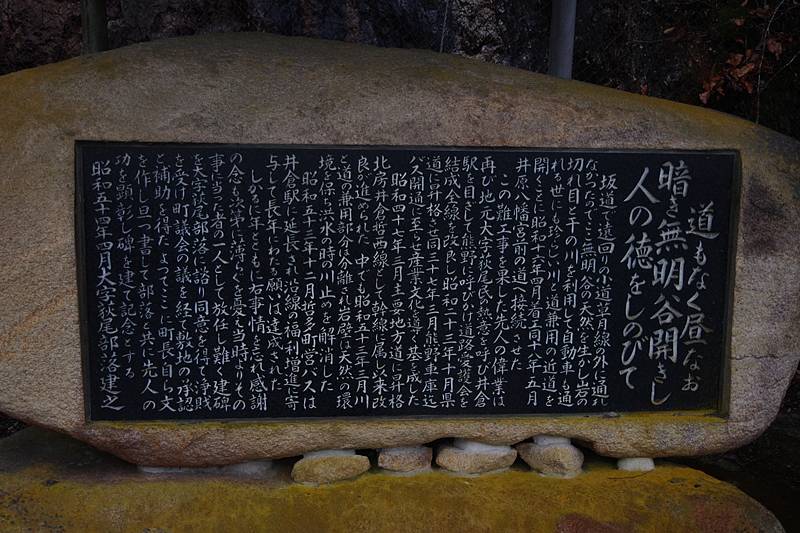 道もなく昼なお
暗き無明谷開きし
人の徳をしのびて
坂道で遠回りの小道草月線の外に通れ
なかったのでここ無明谷の天然を生かし岩の
切れ目と干の川を利用して自動車も通
れる世にも珍らしい川と道兼用の近道を
開くことに昭和六年四月着工同十八年五月
井原八幡宮前の道へ接続させた
この難工事を果した先人の偉業は
再び地元大字荻尾民の熱意を呼び井倉
駅を目ざして熊野に呼びかけ道路実費会を
結成全線を改良し昭和二十三年十月県
道に昇格させ同三十七年三月熊野車庫迄
バス開通に至らせ産業文化を導く基を成した
昭和四十七年三月主要地方道に昇格
北房井倉哲西線として幹線に属し以来改
良が進められた中でも昭和五十三年三月川
と道の兼用部分は分離され岩壁は天然の環
境を保ち洪水の時の川止めを解消した
昭和五十三年十二月哲多町営バスは
井倉駅に延長され沿線の福利増進に寄
与して長年にわたる願いは達成された
しかるに年とともに右事情を忘れ感謝
の念も次第に薄らぐを憂え当時よりその
事に当った者の一人として放任し難く建碑
を大字荻尾部落に諮り同意を得て浄財
を受け町議会の議を経て敷地の承認
と補助を得たよってここに町長自ら文
を作し且つ書して部落と共に先人の
功を顕彰し碑を建て記念とする
昭和五十四年四月大字荻尾部落建之